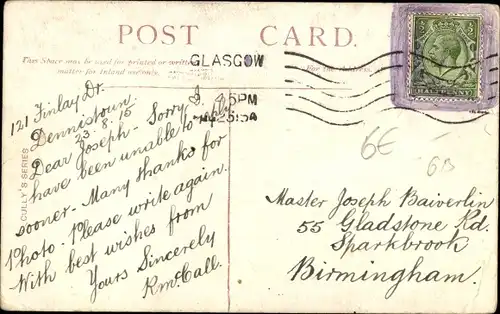 POST CARD.
This Space may be used for printed or written
matter for inland use only.
For the Address
GLASGOW
5PM
HALFPENNY
CULLY'S SERIES
121 Finlay Dr.
Dennistoun
23.8.15
Dear Joseph - Sorry I
have been unable to reply
sooner - Many thanks for
Photo - Please write again.
With best wishes from
Yours Sincerely
R. McCall.
6E
6B
Master Joseph Baiverlin
55 Gladstone Rd.
Sparkbrook
Birmingham.